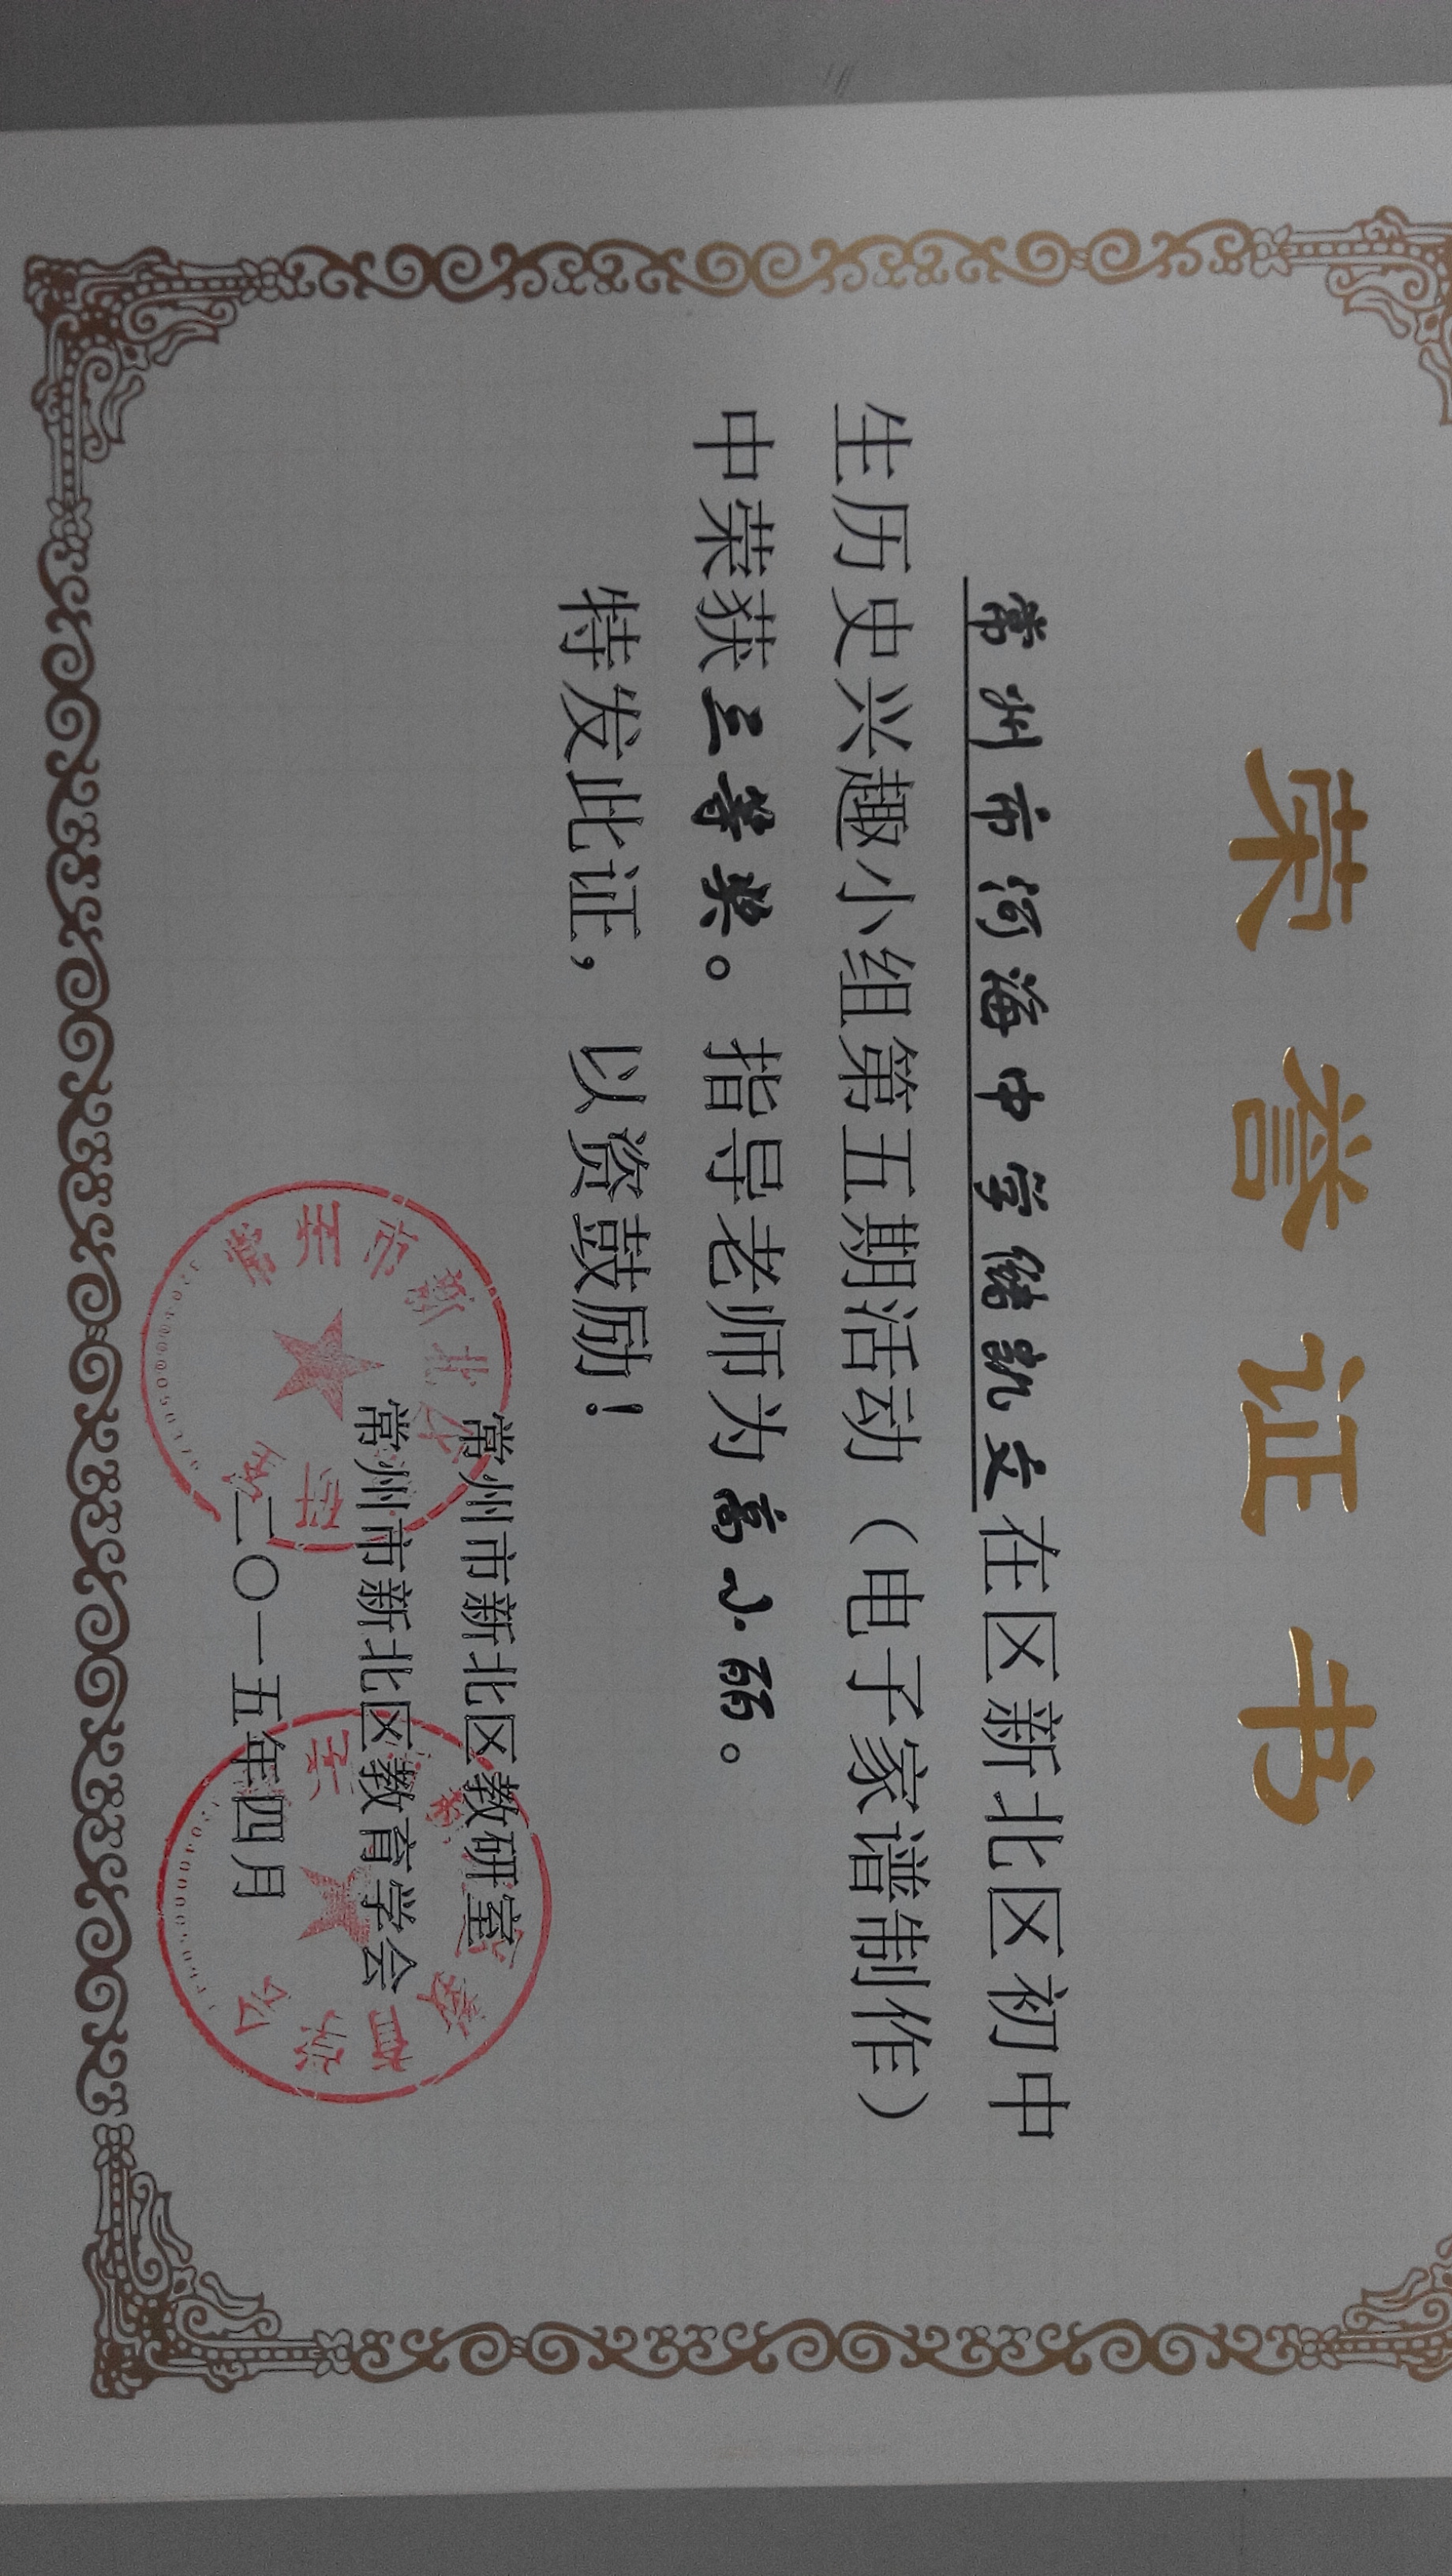 荣誉证书
常州市河海中学储凯文在区新北区初中
生历史兴趣小组第五期活动（电子家谱制作）
中荣获三等奖。指导老师为高小丽。
特发此证，以资鼓励！
常州市新北区教研室
常州市新北区教育学会
二〇一五年四月
常州市新北
教育学会